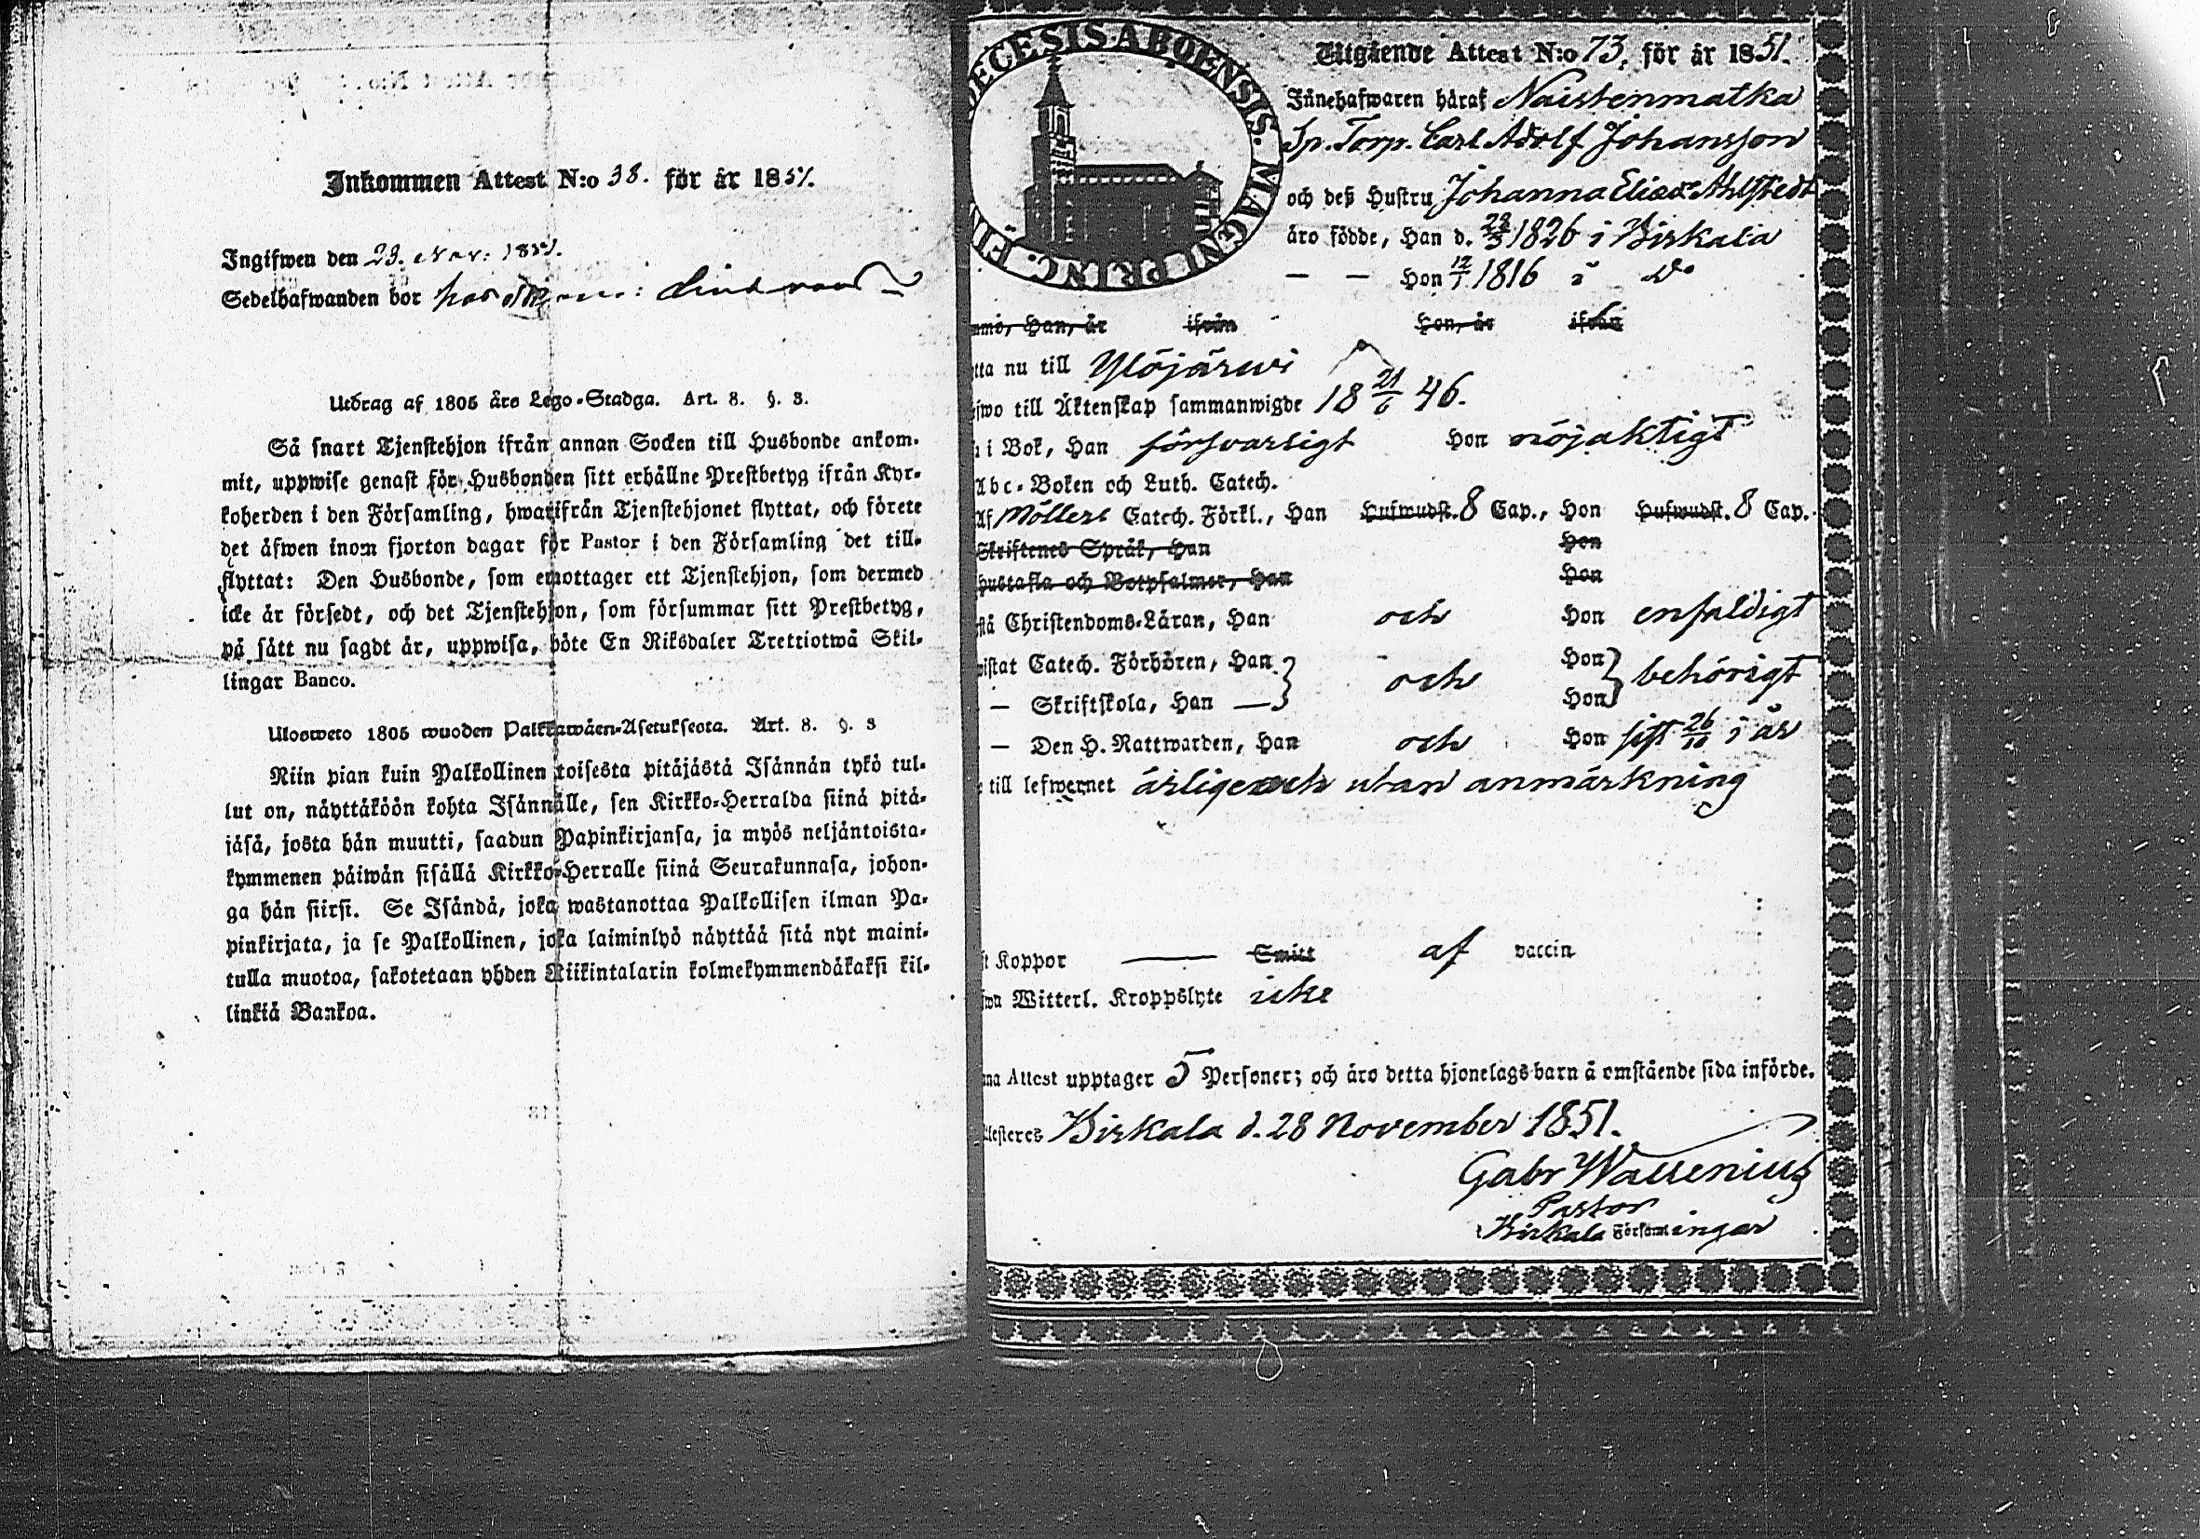 Inkommen Attest N:o 38. för år 1851.
Ingifwen den 29. Nov: 1851.
Sedelhafwanden bor hos
Utdrag af 1805 års Lego-Stadga. Art. 8. §. 3.
Så snart Tjenstehjon ifrån annan Socken till Husbonde ankom-
mit, uppwise genast för Husbonden sitt erhållne Prestbetyg ifrån Kyr-
koherden i den Församling, hwarifrån Tjenstehjonet flyttat, och förete
det äfwen inom fjorton dagar för Pastor i den Församling det till-
flyttat: Den Husbonde, som emottager ett Tjenstehjon, som dermed
icke är försedt, och det Tjenstehjon, som försummar sitt Prestbetyg,
på sätt nu sagdt är, uppwisa, böte En Riksdaler Trettiotwå Skil-
lingar Banco.
Ulosweto 1805 wuoden Palkkawäen-Asetuksesta. Art. 8. §. 3
Niin pian kuin Palkollinen toisesta pitäjästä Isännän tykö tul-
lut on, näyttäköön kohta Isännälle, sen Kirkko-Herralda siinä pitä-
jäsä, josta hän muutti, saadun Papinkirjansa, ja myös neljäntoista-
kymmenen päiwän sisällä Kirkko-Herralle siinä Seurakunnasa, johon-
ga hän siirsi. Se Isändä, joka wastanottaa Palkollisen ilman Pa-
pinkirjata, ja se Palkollinen, joka laiminlyö näyttää sitä nyt maini-
tulla muotoa, sakotetaan yhden Riikintalarin kolmekymmendäkaksi kil-
linkiä Bankoa.
ECESIS·ABOENSIS·MAGNI PRINC. FI
Utgående Attest N:o 73, för år 1851.
Innehafwaren häraf Naistenmatka
Sp. Torp. Carl Adolf Johansson
och deß Hustru Johanna Elisab. Ahlstedt
äro födde, Han d. 1826 i Birkala
— — Hon 12/1 1816 i do
Han, är ifrån Hon, är ifrån
tta nu till Ylöjärwi
swo till Äktenskap sammanwigde 18 21/6 46.
i Bok, Han försvarligt Hon nöjaktigt
Abc-Boken och Luth. Catech.
Af Möllers Catech. Förkl., Han Hufwudst. 8 Cap., Hon Hufwudst. 8 Cap.
Skriftenes Språk, Han Hon
hustafla och Botpsalmer, Han Hon
stå Christendoms-Läran, Han och Hon enfaldigt
wistat Catech. Förhören, Han och Hon behörigt
— Skriftskola, Han — Hon
— Den H. Nattwarden, Han och Hon sist 26/10 i år
till lefwernet ärlige och utan anmärkning
t Koppor — Smitt af vaccin
swa Witterl. Kroppslyte icke
na Attest upptager 5 Personer; och äro detta hjonelags barn å omstående sida införde.
testeres Birkala d. 28 November 1851.
Gabr Wallenius
Pastor
i Birkala Församlingar